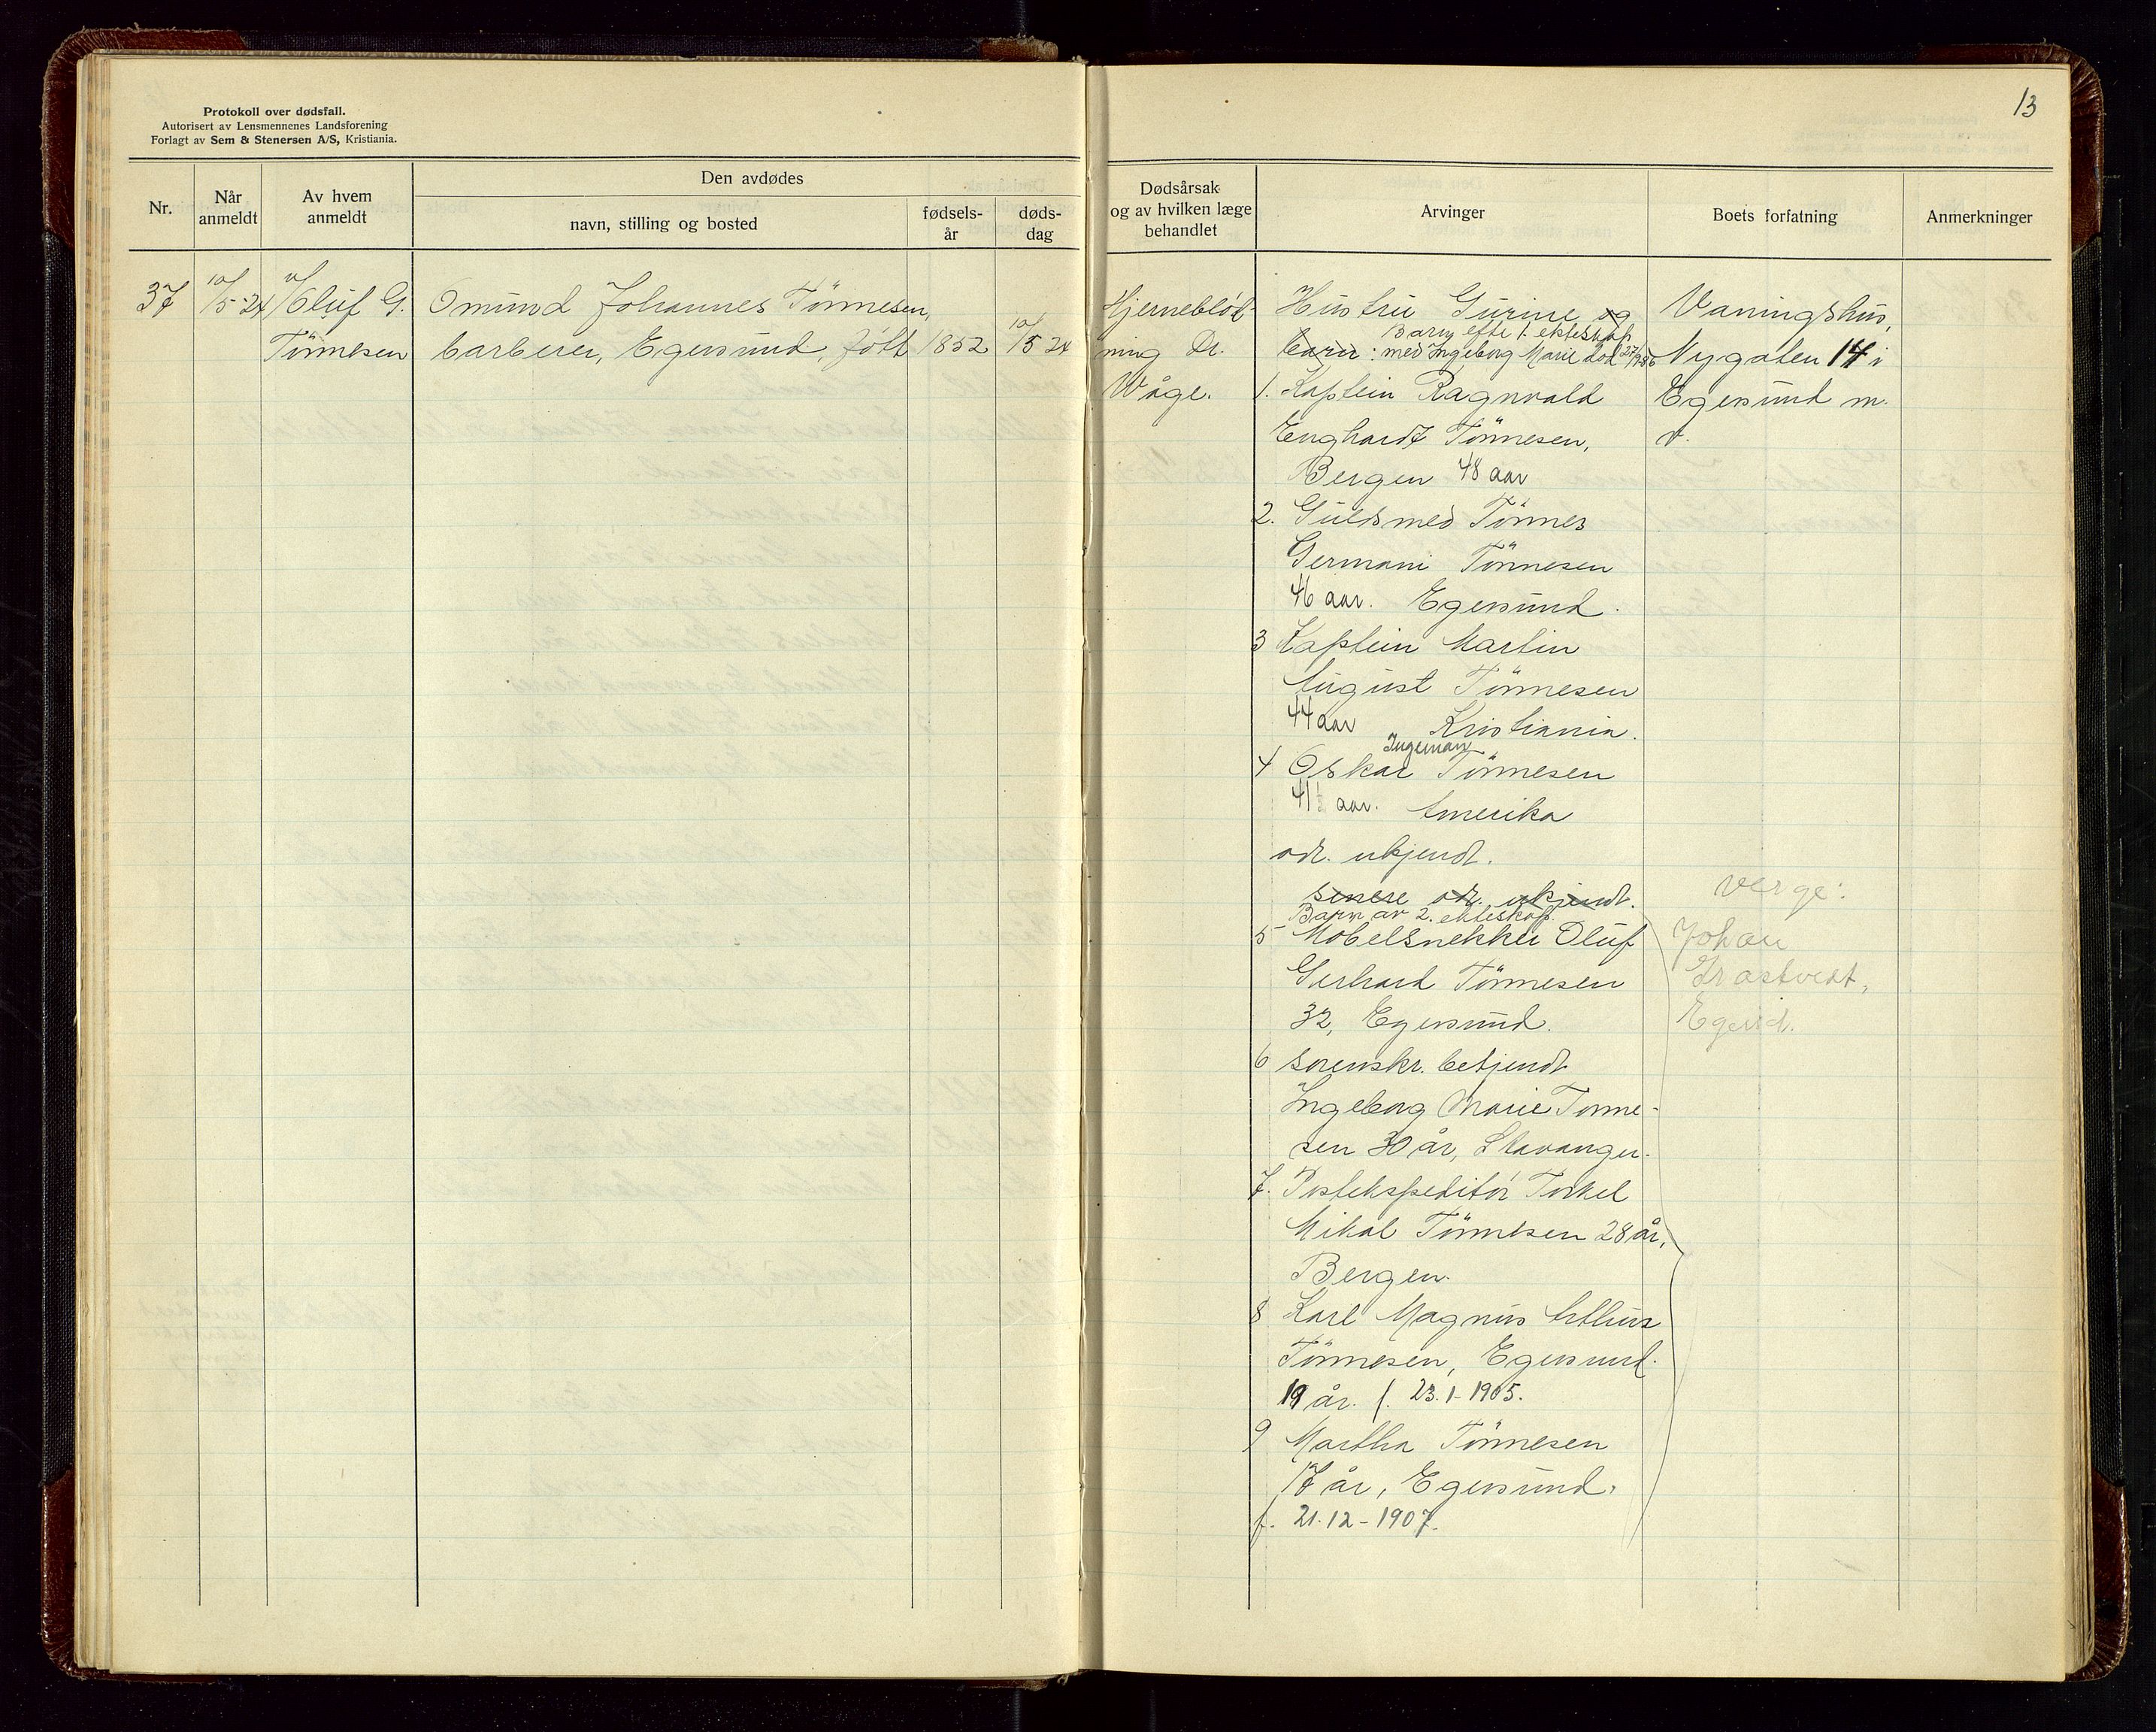 Protokoll over dødsfall.
Autorisert av Lensmennenes Landsforening
Forlagt av Sem & Stenersen A/S, Kristiania.
13
Nr.
Når anmeldt
Av hvem anmeldt
Den avdødes
navn, stilling og bosted
fødsels-år
døds-dag
Dødsårsak og av hvilken læge behandlet
Arvinger
Boets forfatning
Anmerkninger
37
10/5-24
v/ Oluf G.
Tönnesen
Omund Johannes Tönnesen,
barberer, Egersund, født
1852
10/5 24
Hjerneblød-
ning Dr.
Våge.
Hustru Gurine og
Barn efte 1. ekteskap
barn: med Ingeborg Marie død
1. Kaptein Ragnvald
Enghardt Tönnesen,
Bergen 48 aar
2. Guldsmed Tönnes
Germani Tönnesen
46 aar. Egersund.
3 Kaptein Martin
August Tönnesen
44 aar Kristiania.
Ingeman
4 Oskar Tönnesen
41 aar. Amerika
adr. ukjendt.
senere adr. ukjendt.
Barn av 2. ekteskap
5 Møbelsnekker Oluf
Gerhard Tönnesen
32, Egersund.
6 sorenskr. betjendt
Ingeborg Marie Tönne-
sen 30 år, Stavanger.
7. Postekspeditör Torkel
Mikal Tönnesen 28 år,
Bergen.
8 Karl Magnus Arthur
Tönnesen, Egersund.
19 år. f. 23.1-1905.
9 Martha Tönnesen
17 år, Egersund.
f. 21.12-1907.
Vaningshus,
Nygaten 14 i
Egersund m.
v.
verge:
Johan
Egersd.